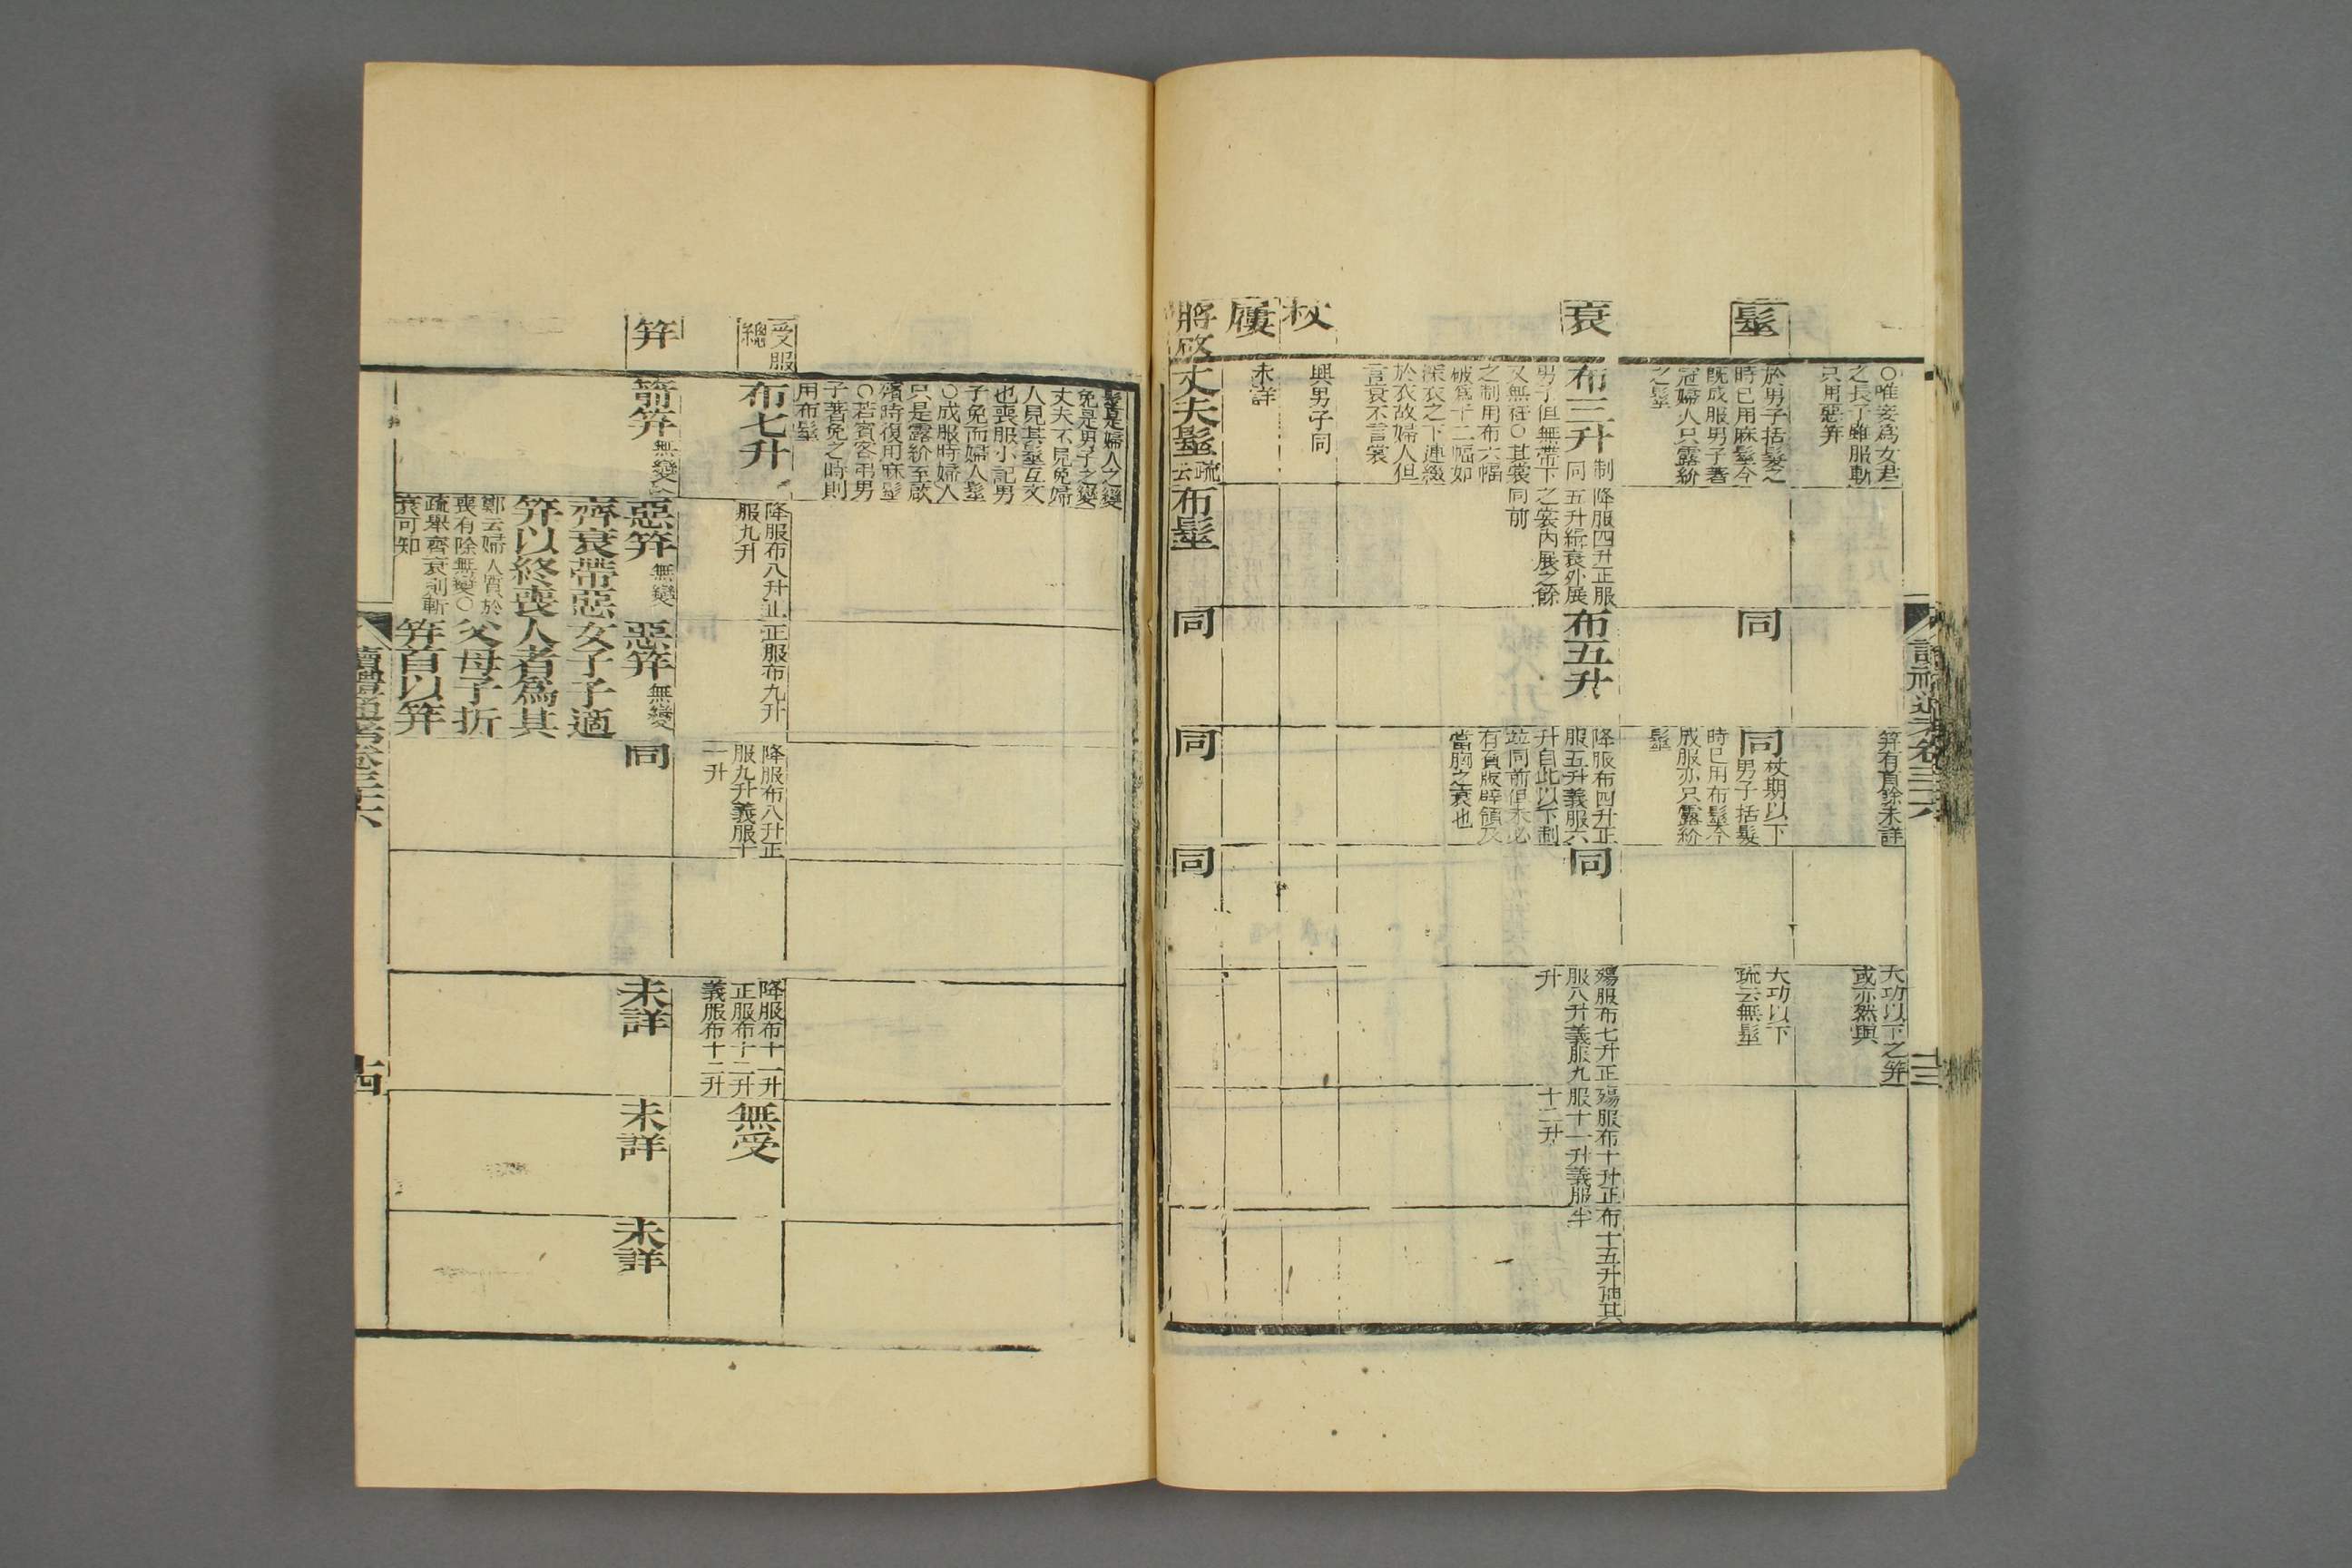 ○唯妾為女君
之長子雖服斬
只用惡笄
笄有首餘未詳
大功以下之笄
或亦然與
髽
於男子括髮之
時已用麻髽今
旣成服男子著
冠婦人只露紒
之髽
同
同
杖期以下
男子括髮
時已用布髽今
成服亦只露紒
髽
大功以下
疏云無髽
衰
布三升
制
同
男子但無帶下
又無衽○其裳
之制用布六幅
破爲十二幅如
深衣之下連綴
於衣故婦人但
言衰不言裳
降服四升正服
五升緦衰外展
之裳內展之餘
同前
布五升
降服布四升正
服五升義服六
升自此以下制
竝同前但不必
有負版辟領及
當胸之衰也
同
殤服布七升正
服八升義服九
升
殤服布十升正
服十一升義服
十二升
布十五升抽其
半
杖
與男子同
屨
未詳
將啟
丈夫髽
疏
云
布髽
同
同
同
讀禮通考卷三十六
十三
髽是婦人之變
免是男子之變
丈夫不見免婦
人見其髽互文
也喪服小記男
子免而婦人髽
○成服時婦人
只是露紒至啟
殯時復用麻髽
○若賓客弔男
子著免之時則
用布髽
受服
總
布七升
降服布八升正
服九升
正服布九升
降服布八升正
服九升義服十
一升
降服布十一升
正服布十二升
義服布十二升
無受
笄
箭笄
無變
惡笄
無變
齊衰帶惡
笄以終喪
鄭云婦人質於
喪有除無變○
疏舉齊衰則斬
衰可知
惡笄
無變
女子子適
人者爲其
父母子折
笄首以笄
同
未詳
未詳
未詳
讀禮通考卷三十六
十四